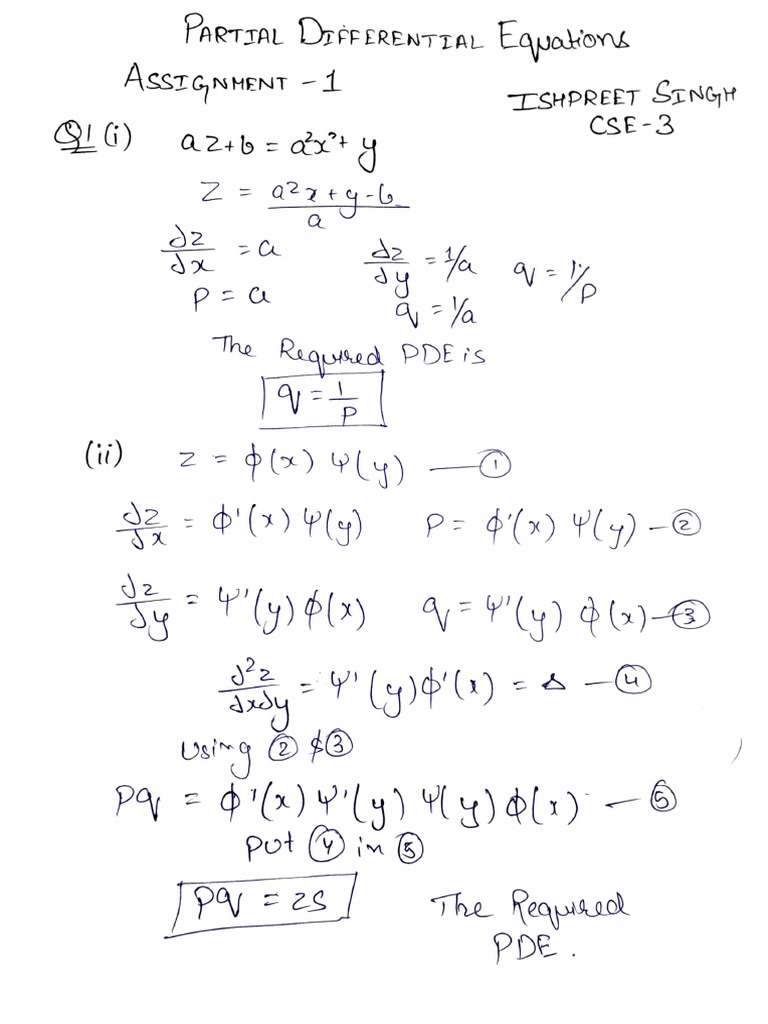 PARTIAL DIFFERENTIAL Equations
ASSIGNMENT - 1
ISHPREET SINGH
CSE-3
Q1 (i) az+b = a²x²+ y
z = a²x+y-b / a
∂z/∂x = a ∂z/∂y = 1/a q = 1/p
P = a q = 1/a
The Required PDE is
q = 1/P
(ii) z = ϕ(x) Ψ(y) — ①
∂z/∂x = ϕ'(x) Ψ(y) P = ϕ'(x) Ψ(y) — ②
∂z/∂y = Ψ'(y) ϕ(x) q = Ψ'(y) ϕ(x) — ③
∂²z/∂x∂y = Ψ'(y) ϕ'(x) = s — ④
using ② & ③
Pq = ϕ'(x) Ψ'(y) Ψ(y) ϕ(x) — ⑤
put ④ in ⑤
Pq = zs The Required
PDE.